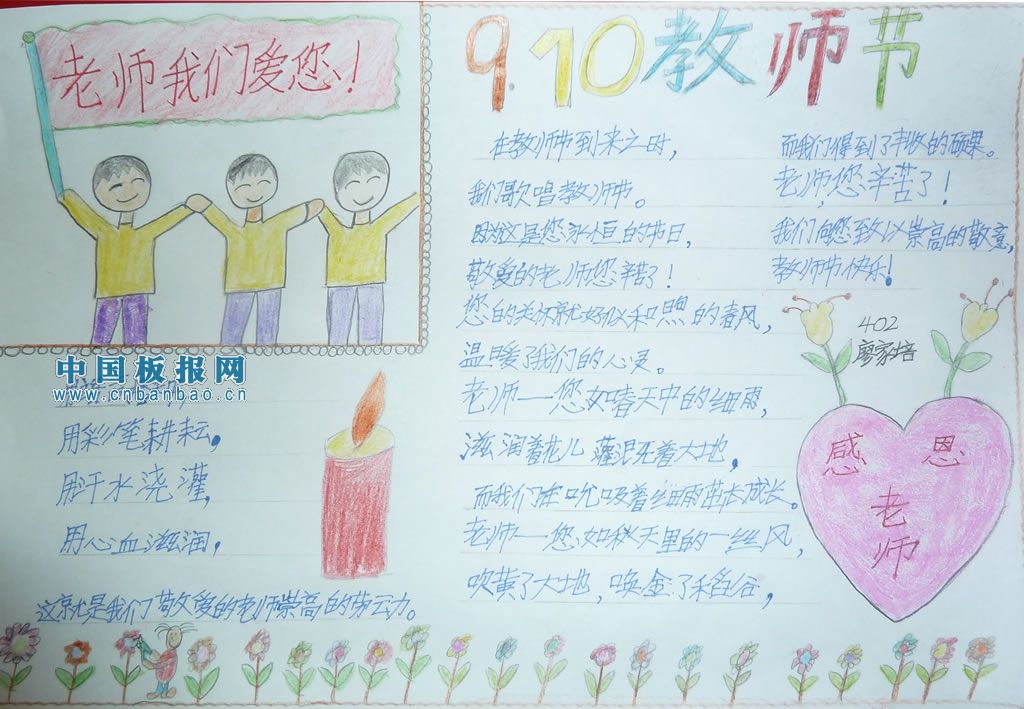 老师我们爱您!
9.10教师节
在教师节到来之时,
我们歌唱教师节。
因为这是您永恒的节日,
敬爱的老师您辛苦了!
您的关怀就好似和煦的春风,
温暖了我们的心灵。
老师—您如春天中的细雨,
滋润着花儿灌溉着大地,
而我们在吮吸着细雨茁长成长。
老师—您如秋天里的一丝风,
吹黄了大地,唤金了稻谷,
而我们得到了丰收的硕果。
老师,您辛苦了!
我们向您致以崇高的敬意,
教师节快乐!
402
廖家培
感恩
老师
中国板报网
www.cnbanbao.cn
用彩笔耕耘,
用汗水浇灌,
用心血滋润,
这就是我们敬爱的老师崇高的劳动力。